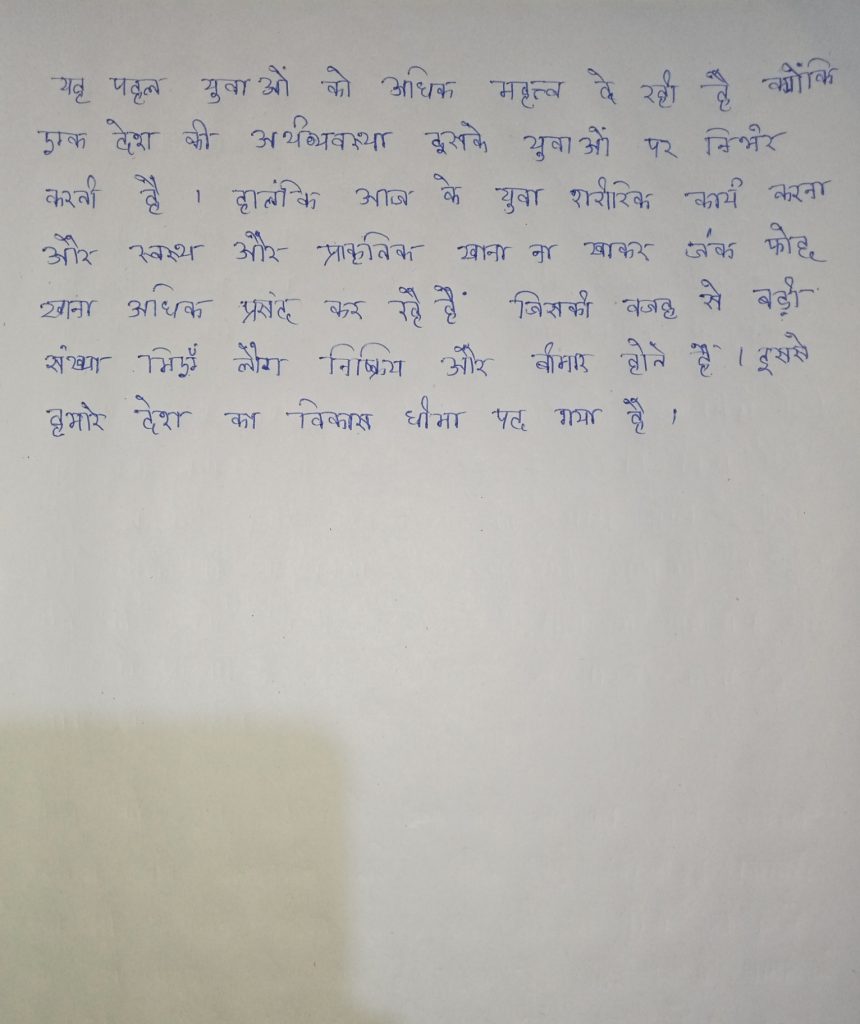 यह पहल युवाओं को अधिक महत्त्व दे रही है क्योंकि
एक देश की अर्थव्यवस्था इसके युवाओं पर निर्भर
करती है । हालांकि आज के युवा शारीरिक कार्य करना
और स्वस्थ और प्राकृतिक खाना ना खाकर जंक फोड
खाना अधिक प्रसंद कर रहै हैं जिसकी वजह से बड़ी
संख्या मिएँ लौग निष्क्रिय और बीमार होते हैं । इससे
हमारे देश का विकास धीमा पद गया है ।